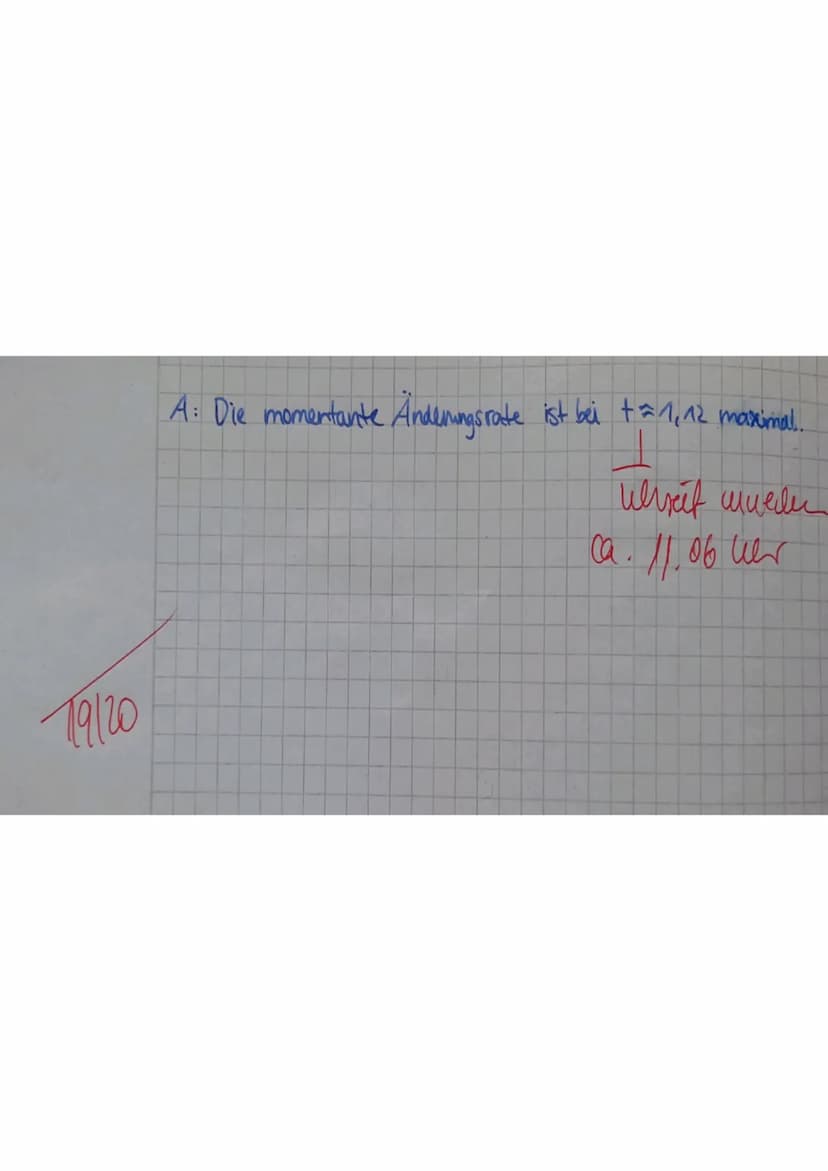 A: Die momentante Änderungsrate ist bei t ≈ 1,12 maximal.
ca. 11.06 Uhr
19/20